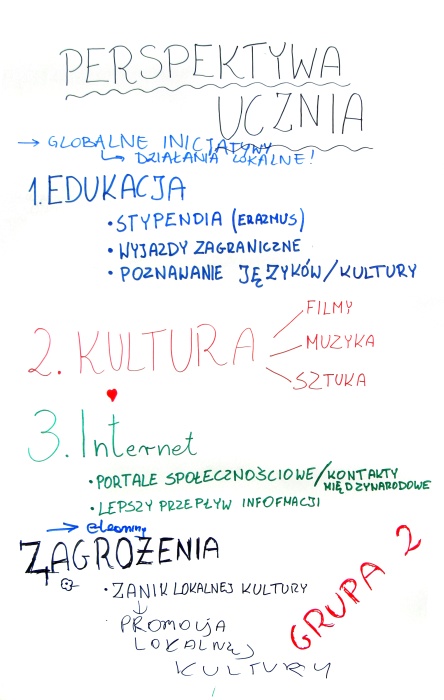 PERSPEKTYWA
UCZNIA
→ GLOBALNE INICJATYWY
↳ DZIAŁANIA LOKALNE!
1. EDUKACJA
• STYPENDIA (ERAZMUS)
• WYJAZDY ZAGRANICZNE
• POZNAWANIE JĘZYKÓW/KULTURY
2. KULTURA
FILMY
MUZYKA
SZTUKA
3. Internet
• PORTALE SPOŁECZNOŚCIOWE/KONTAKTY
MIĘDZYNARODOWE
• LEPSZY PRZEPŁYW INFOFMACJI
→ elearning
ZAGROŻENIA
• ZANIK LOKALNEJ KULTURY
↓
PROMOCJA
LOKALNEJ
KULTURY
GRUPA 2